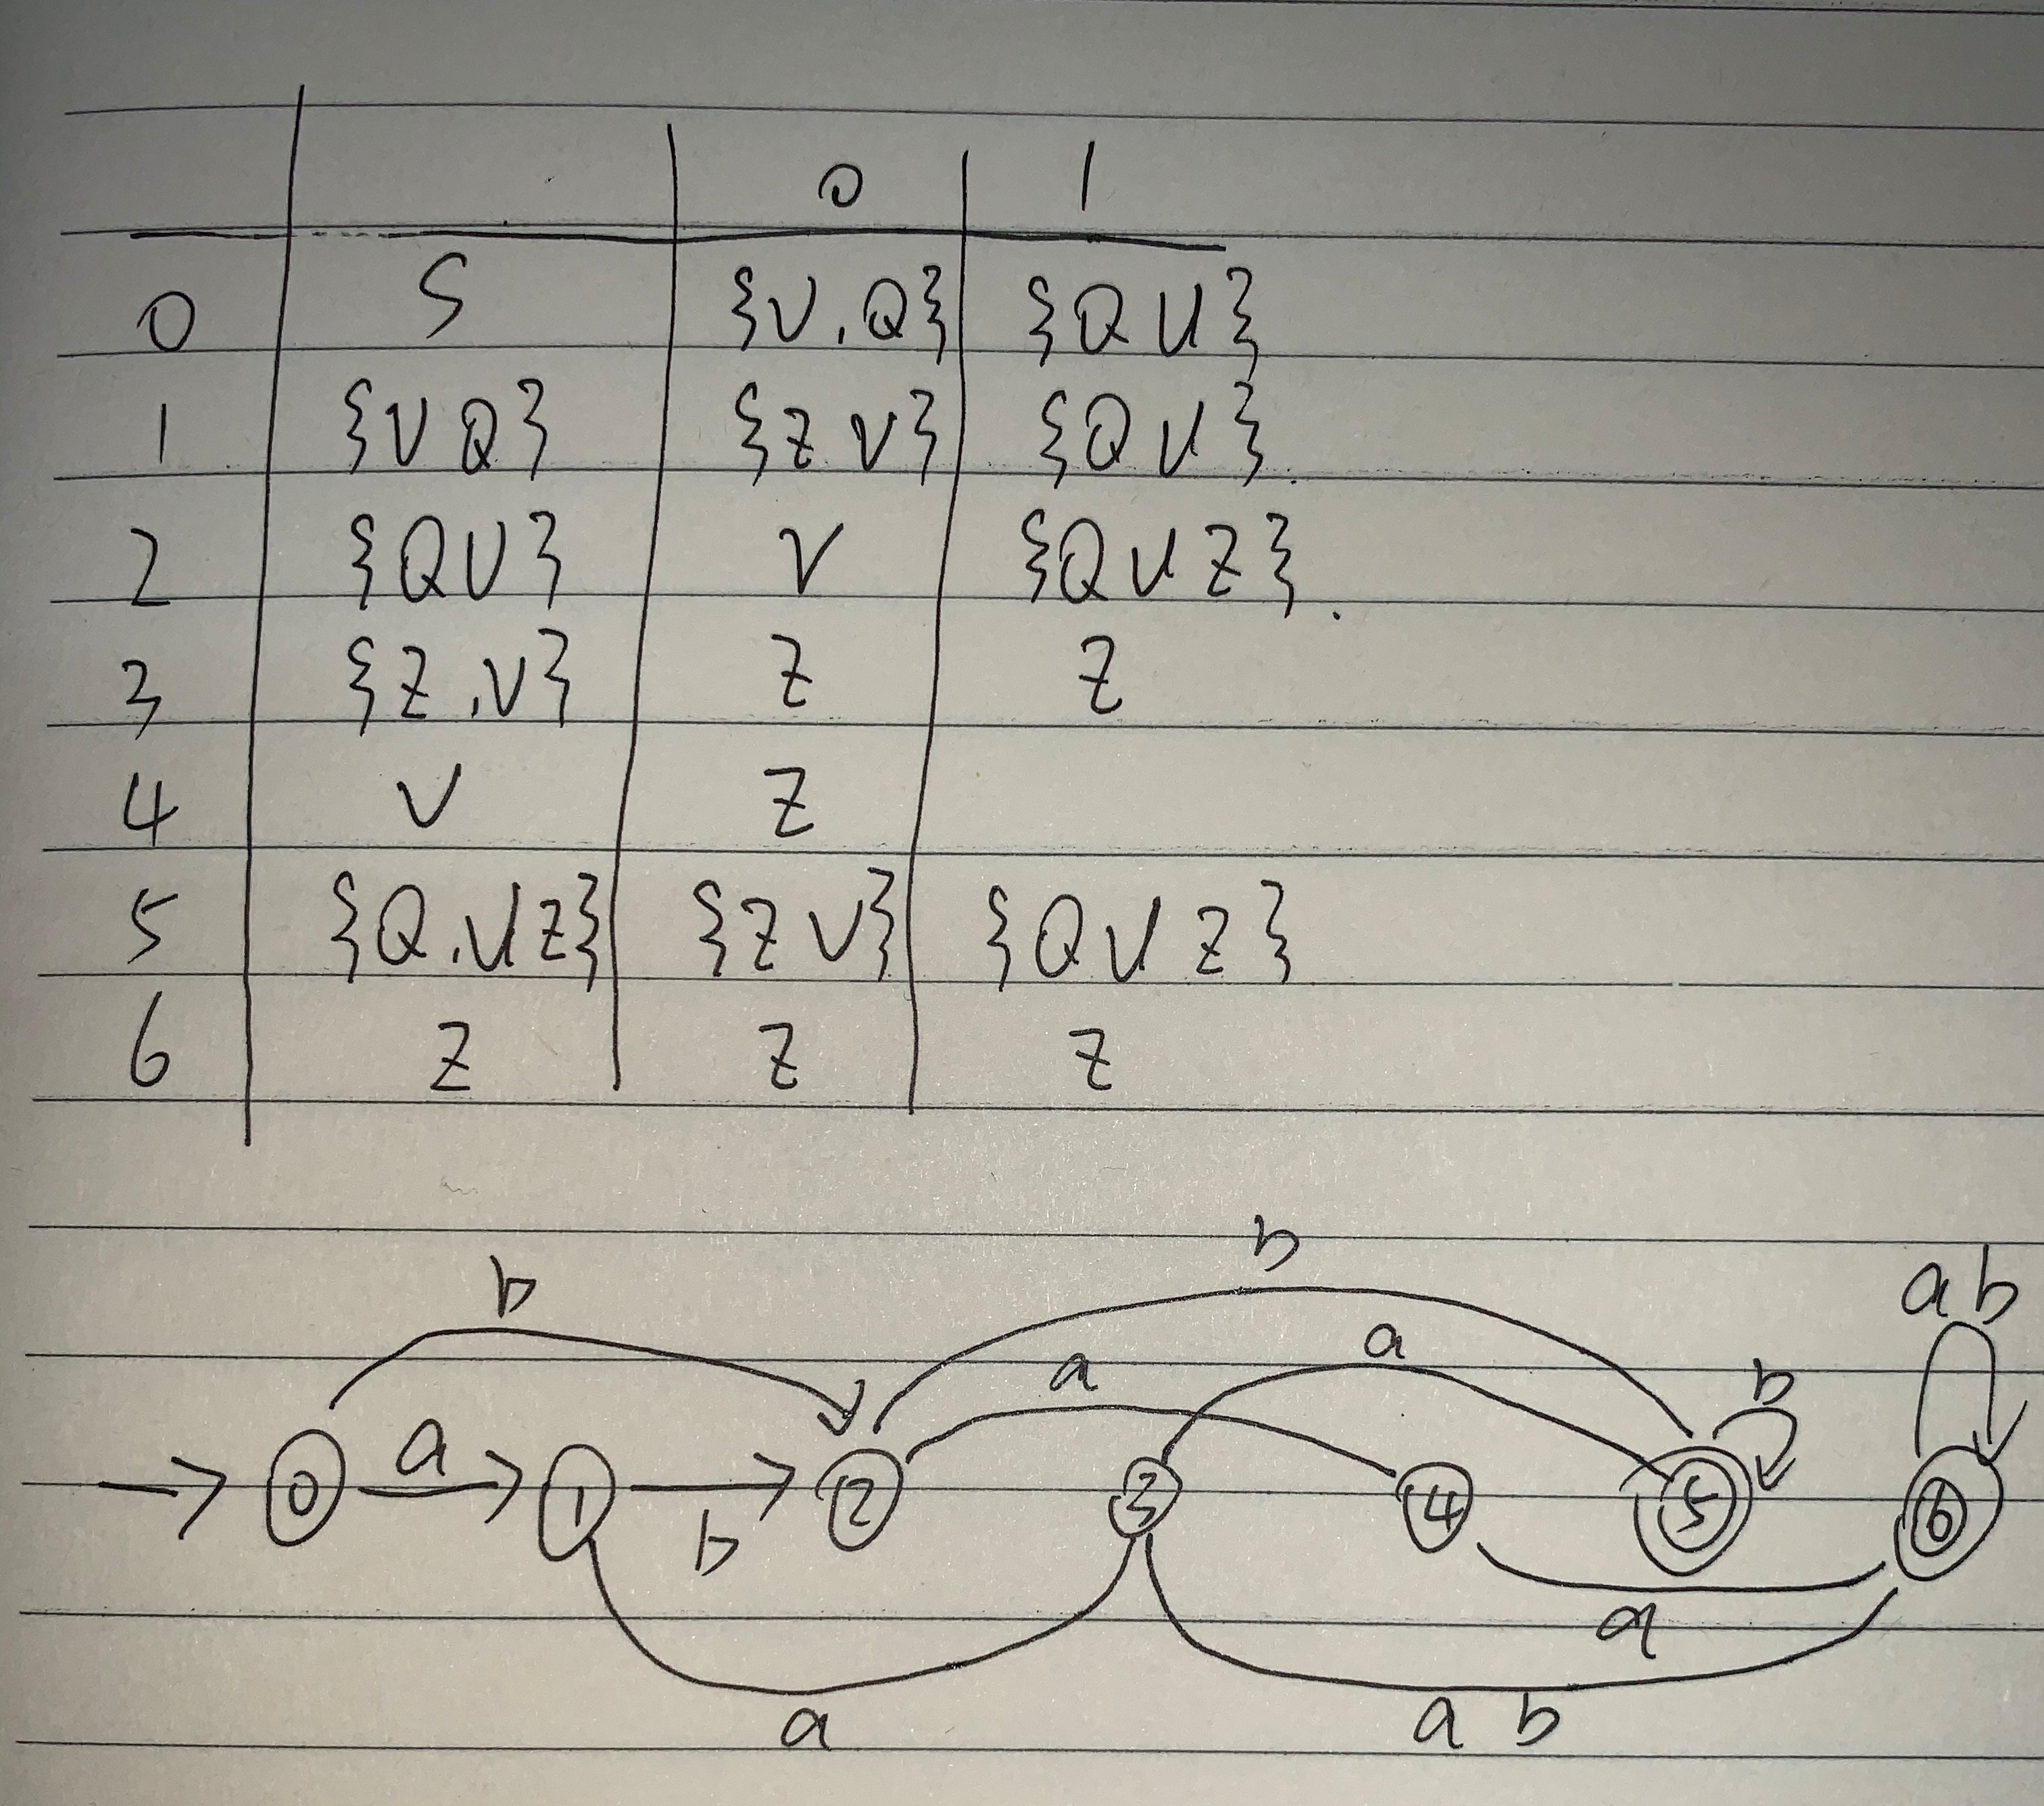 0 1
0 S {V.Q} {Q U}
1 {V Q} {Z V} {Q U}.
2 {Q U} V {Q U Z}.
3 {Z.V} Z Z
4 V Z
5 {Q.U Z} {Z V} {Q U Z}
6 Z Z Z
b
b a b
a a b
a
0 1 2 3 4 5 6
b
a
a a b